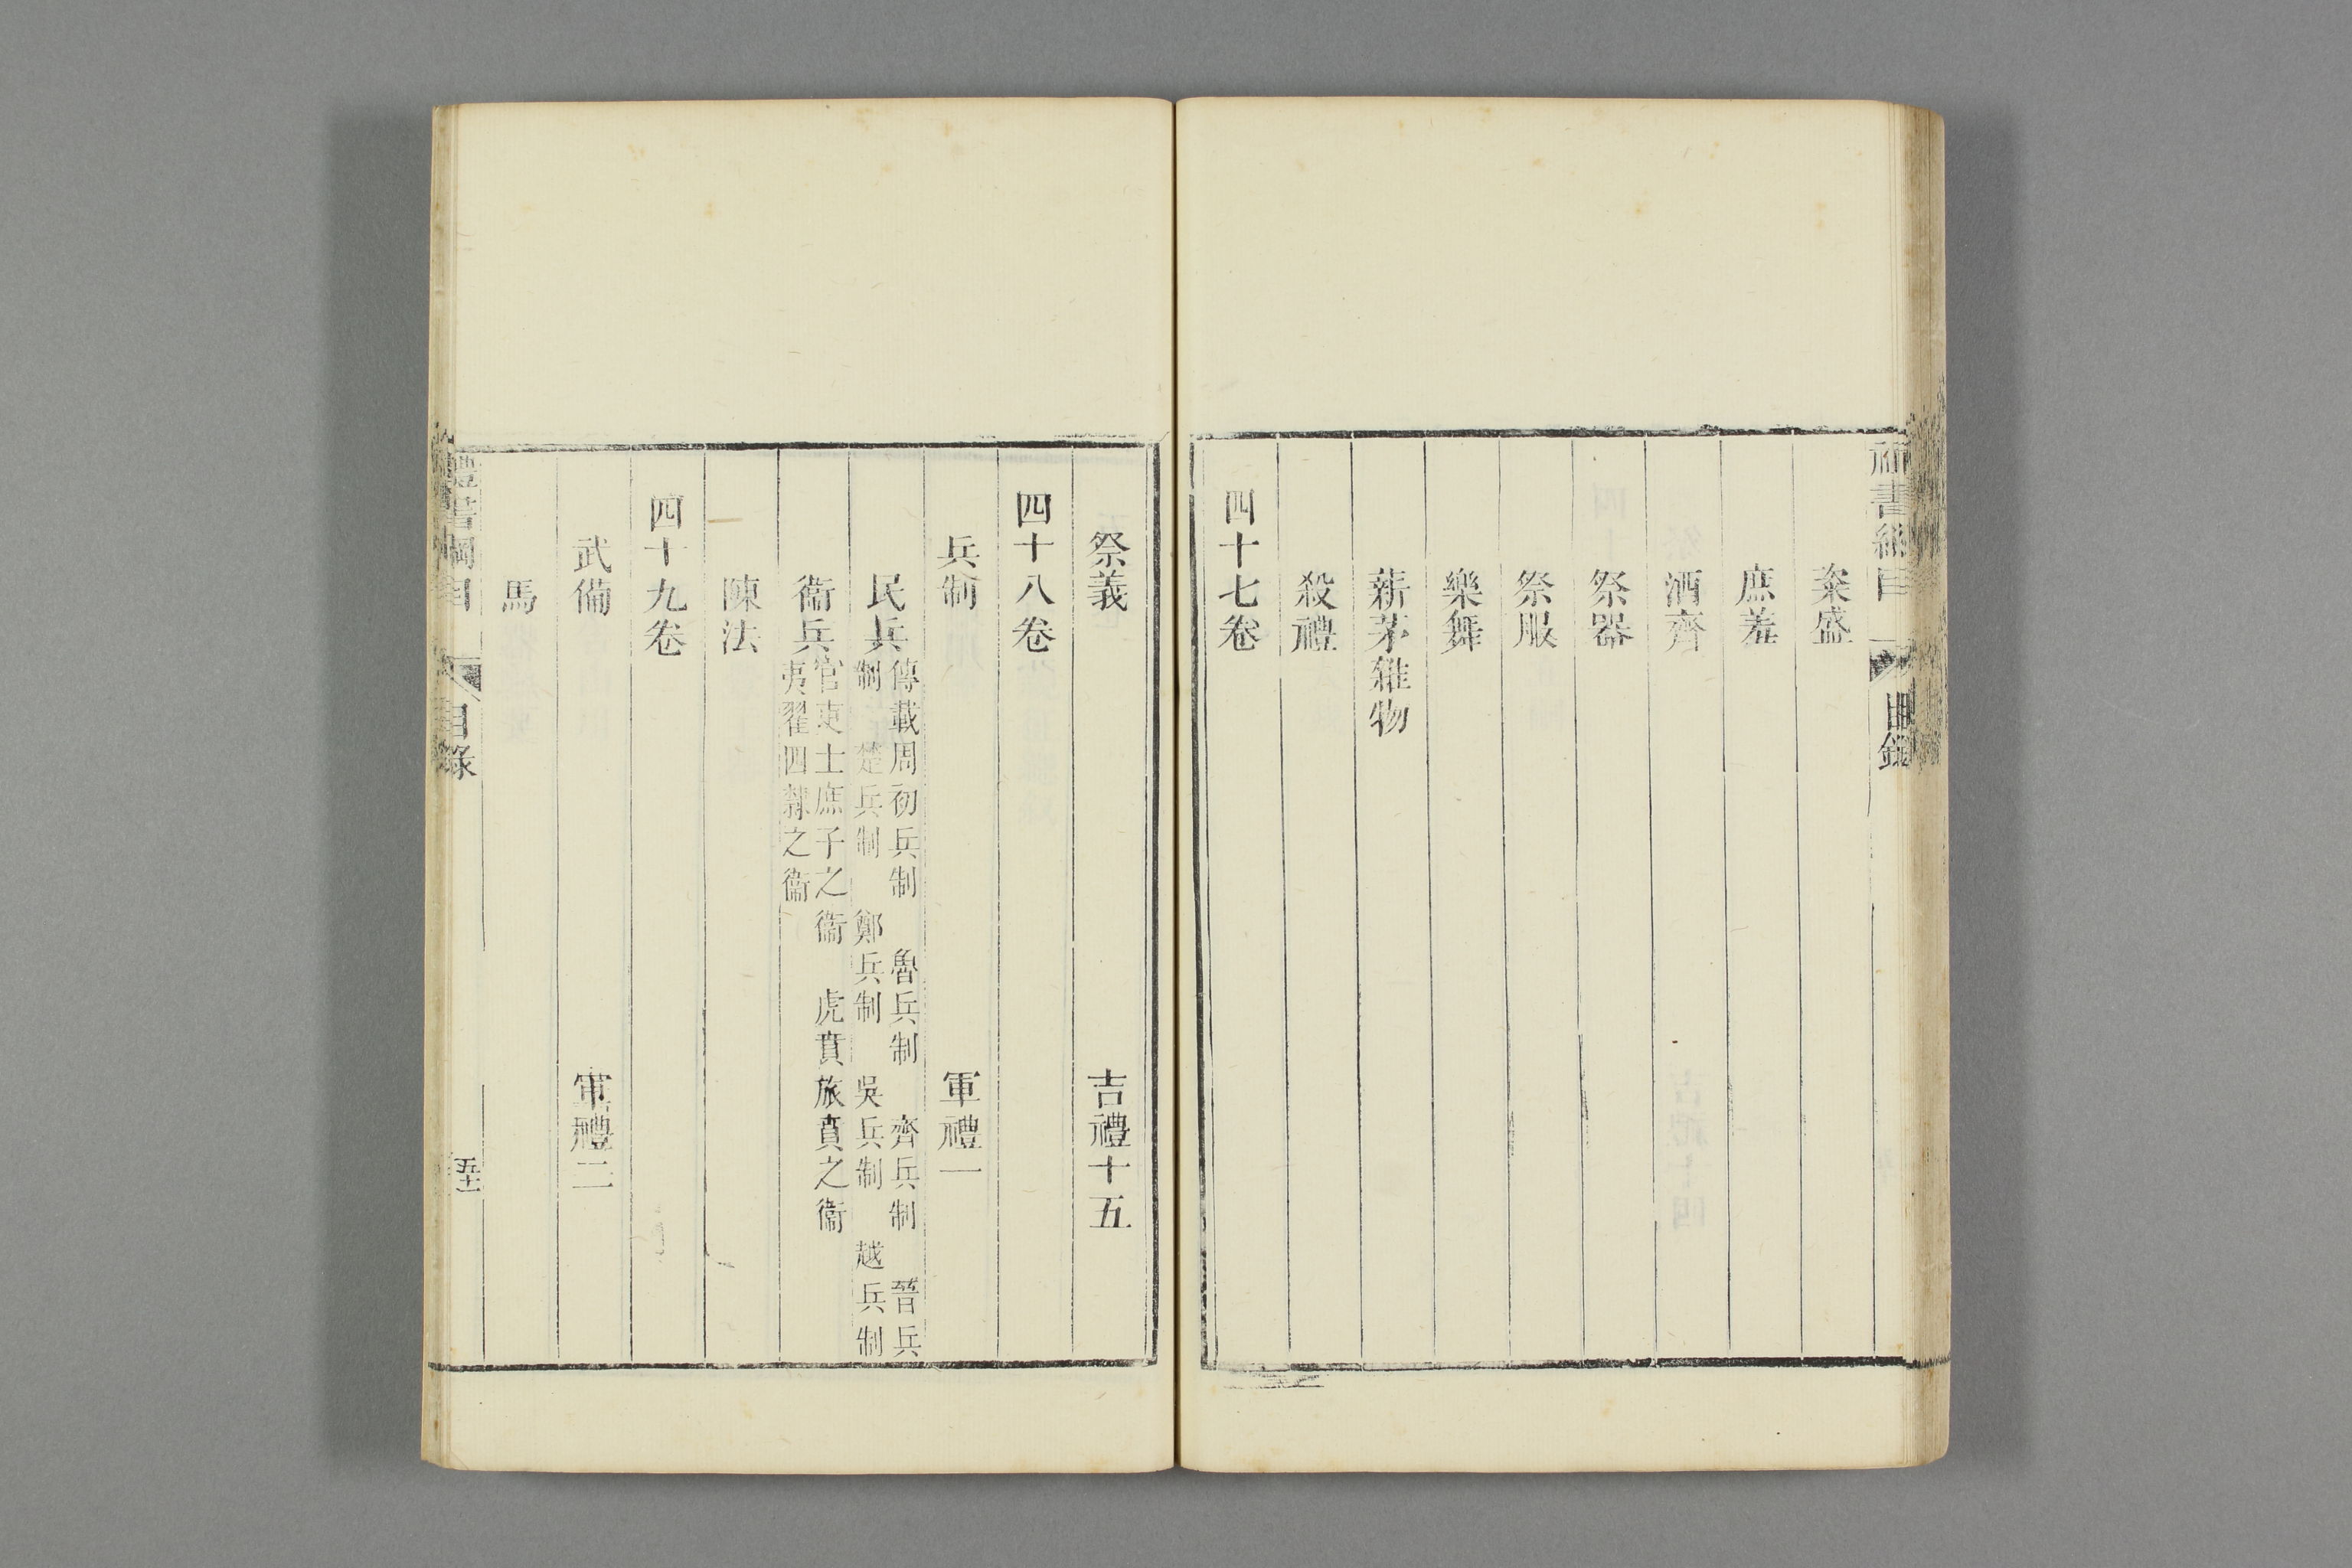 粢盛
庶羞
酒齊
祭器
祭服
樂舞
薪茅雜物
殺禮
四十七卷
祭義 吉禮十五
四十八卷
兵制 軍禮一
民兵 傳載周初兵制 魯兵制 齊兵制 晉兵
制 楚兵制 鄭兵制 吳兵制 越兵制
衞兵 官吏士庶子之衞 虎賁旅賁之衞
夷翟四隸之衞
陳法
四十九卷
武備 軍禮二
馬
禮書綱目 目錄